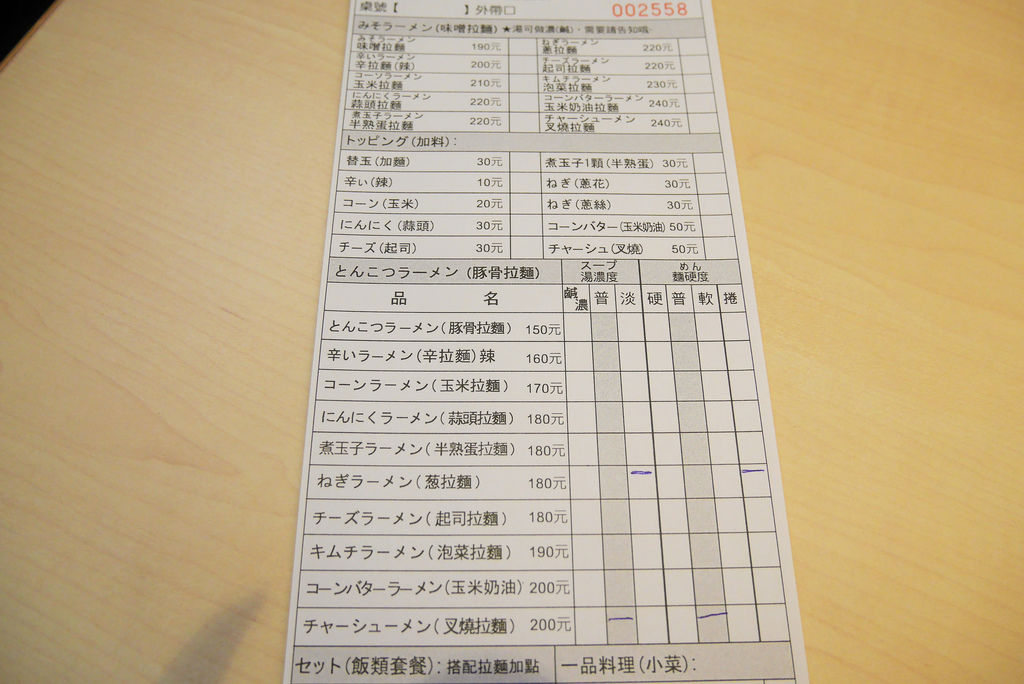 桌號【 】外帶口 002558
みそラーメン(味噌拉麵)★湯可做濃(鹹)，需要請告知哦。
みそラーメン ねぎラーメン
味噌拉麵 190元 蔥拉麵 220元
辛いラーメン チーズラーメン
辛拉麵(辣) 200元 起司拉麵 220元
コーンラーメン キムチラーメン
玉米拉麵 210元 泡菜拉麵 230元
にんにくラーメン コーンバターラーメン
蒜頭拉麵 220元 玉米奶油拉麵 240元
煮玉子ラーメン チャーシューメン
半熟蛋拉麵 220元 叉燒拉麵 240元
トッピング(加料)：
替玉(加麵) 30元 煮玉子1顆(半熟蛋) 30元
辛い(辣) 10元 ねぎ(蔥花) 30元
コーン(玉米) 20元 ねぎ(蔥絲) 30元
にんにく(蒜頭) 30元 コーンバター(玉米奶油) 50元
チーズ(起司) 30元 チャーシュ(叉燒) 50元
とんこつラーメン (豚骨拉麵) スープ 湯濃度 めん 麵硬度
品 名 鹹濃 普 淡 硬 普 軟 捲
とんこつラーメン(豚骨拉麵) 150元
辛いラーメン(辛拉麵)辣 160元
コーンラーメン(玉米拉麵) 170元
にんにくラーメン(蒜頭拉麵) 180元
煮玉子ラーメン(半熟蛋拉麵) 180元
ねぎラーメン(葱拉麵) 180元
チーズラーメン(起司拉麵) 180元
キムチラーメン(泡菜拉麵) 190元
コーンバターラーメン(玉米奶油) 200元
チャーシューメン(叉燒拉麵) 200元
セット(飯類套餐)：搭配拉麵加點 一品料理(小菜)：